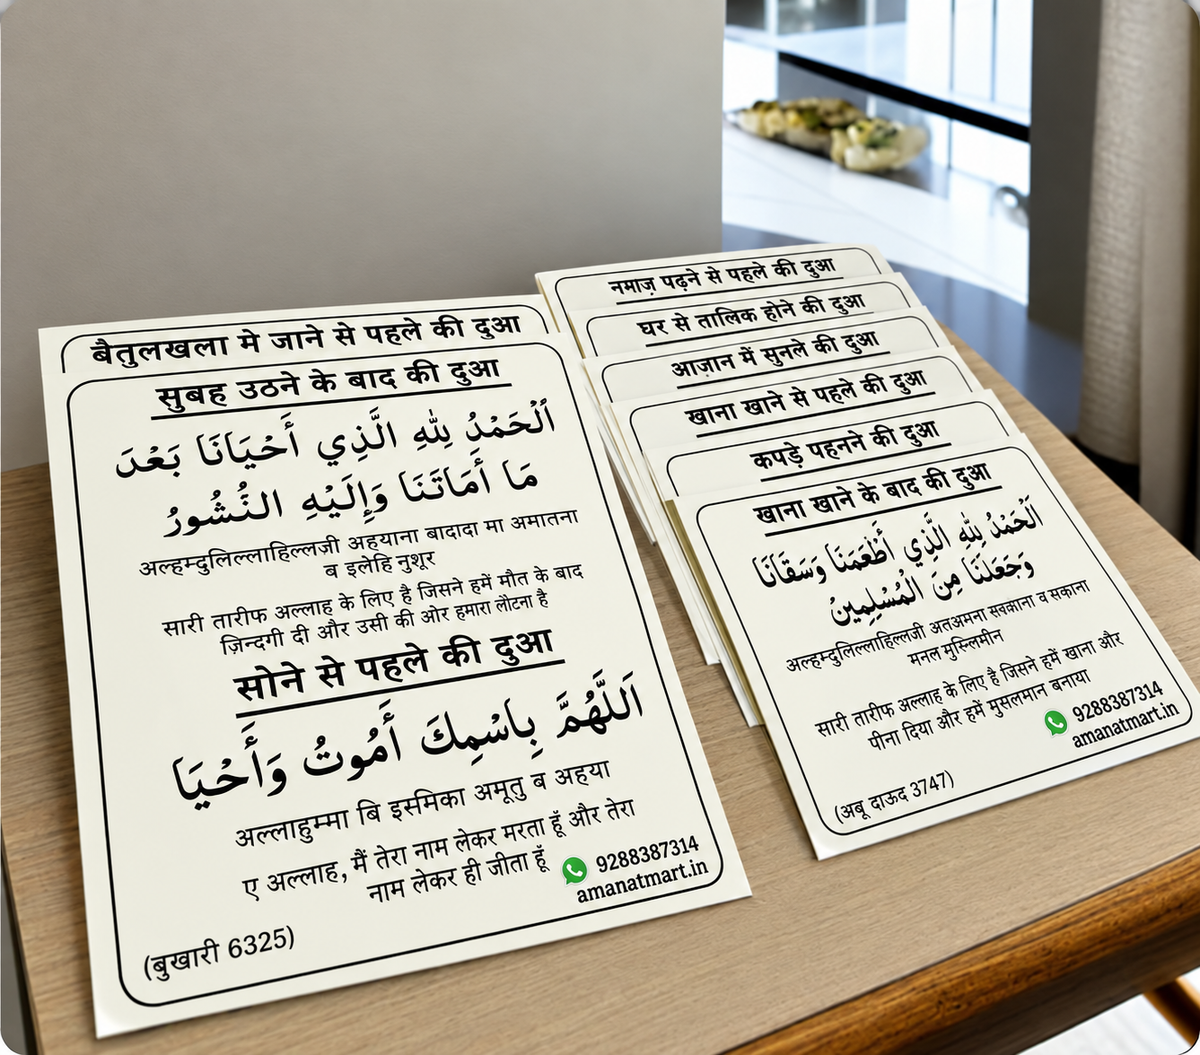 बैतुलखला मे जाने से पहले की दुआ
सुबह उठने के बाद की दुआ
اَلْحَمْدُ لِلّٰهِ الَّذِي أَحْيَانَا بَعْدَ
مَا أَمَاتَنَا وَإِلَيْهِ النُّشُورُ
अल्हम्दुलिल्लाहिल्लजी अहयाना बादादा मा अमातना
व इलेहि नुशूर
सारी तारीफ अल्लाह के लिए है जिसने हमें मौत के बाद
ज़िन्दगी दी और उसी की ओर हमारा लौटना है
सोने से पहले की दुआ
اَللّٰهُمَّ بِاسْمِكَ أَمُوتُ وَأَحْيَا
अल्लाहुम्मा बि इसमिका अमूतु व अहया
ए अल्लाह, मैं तेरा नाम लेकर मरता हूँ और तेरा
नाम लेकर ही जीता हूँ
9288387314
amanatmart.in
(बुखारी 6325)
नमाज़ पढ़ने से पहले की दुआ
घर से तालिक होने की दुआ
आज़ान में सुनले की दुआ
खाना खाने से पहले की दुआ
कपड़े पहनने की दुआ
खाना खाने के बाद की दुआ
اَلْحَمْدُ لِلّٰهِ الَّذِي أَطْعَمَنَا وَسَقَانَا
وَجَعَلَنَا مِنَ الْمُسْلِمِينَ
अल्हम्दुलिल्लाहिल्लजी अतअमना सवक़ाना व सकाना
मनल मुस्लिमीन
सारी तारीफ अल्लाह के लिए है जिसने हमें खाना और
पीना दिया और हमें मुसलमान बनाया
9288387314
amanatmart.in
(अबू दाऊद 3747)